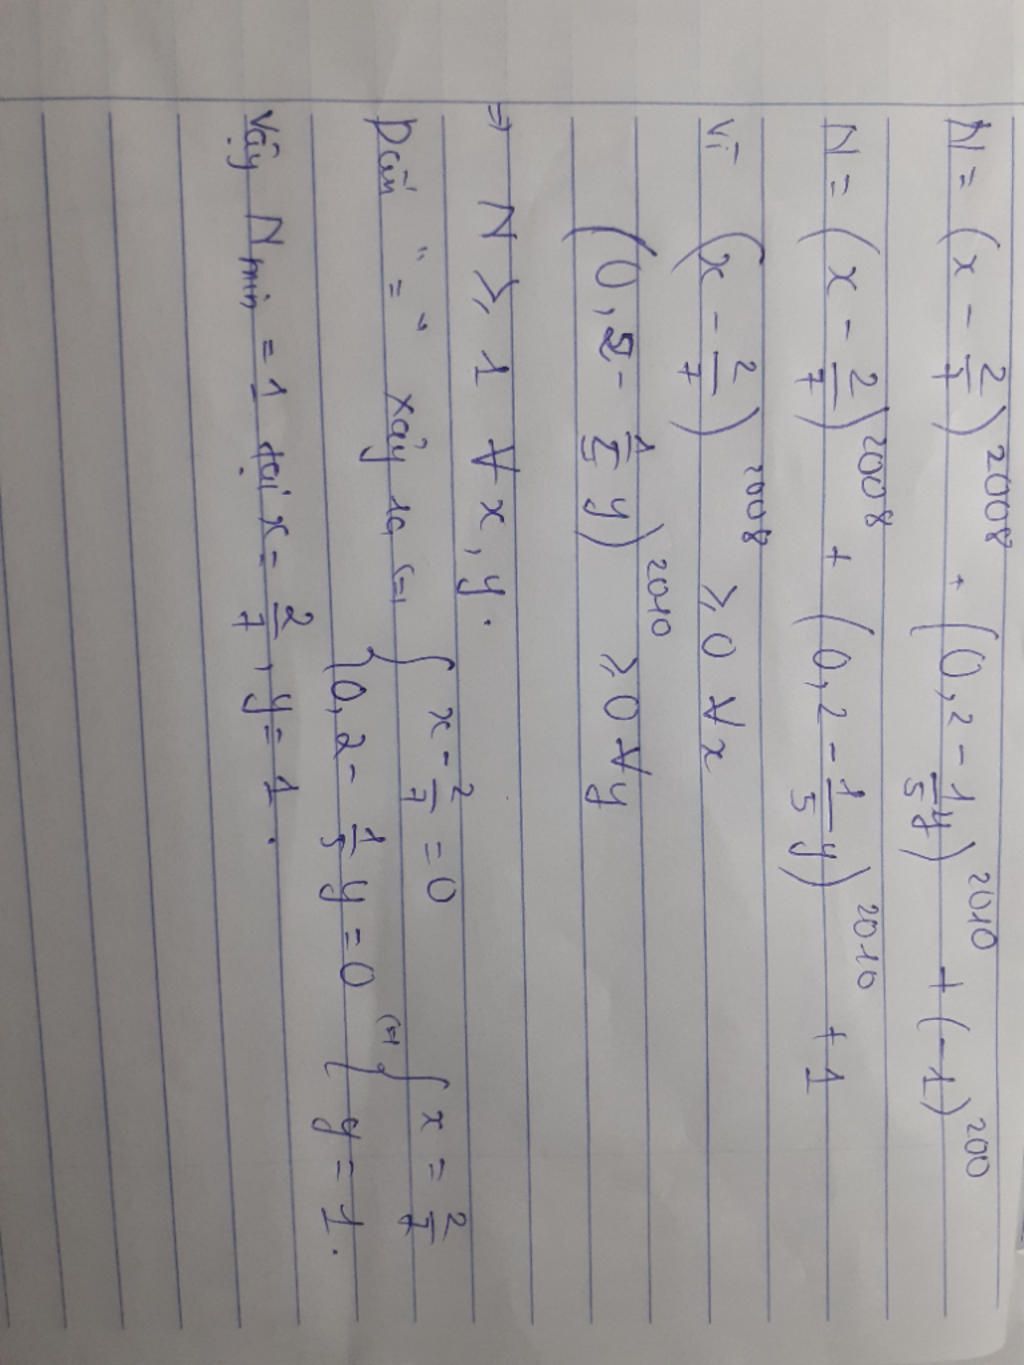 N = (x - 2/7)^2008 + (0,2 - 1/5 y)^2010 + (-1)^200
N = (x - 2/7)^2008 + (0,2 - 1/5 y)^2010 + 1
Vì (x - 2/7)^2008 ≥ 0 ∀ x
(0,2 - 1/5 y)^2010 ≥ 0 ∀ y
⇒ N ≥ 1 ∀ x, y.
Dấu "=" xảy ra (=) { x - 2/7 = 0 (=) { x = 2/7
{ 0,2 - 1/5 y = 0 { y = 1.
Vậy N min = 1 tại x = 2/7, y = 1.